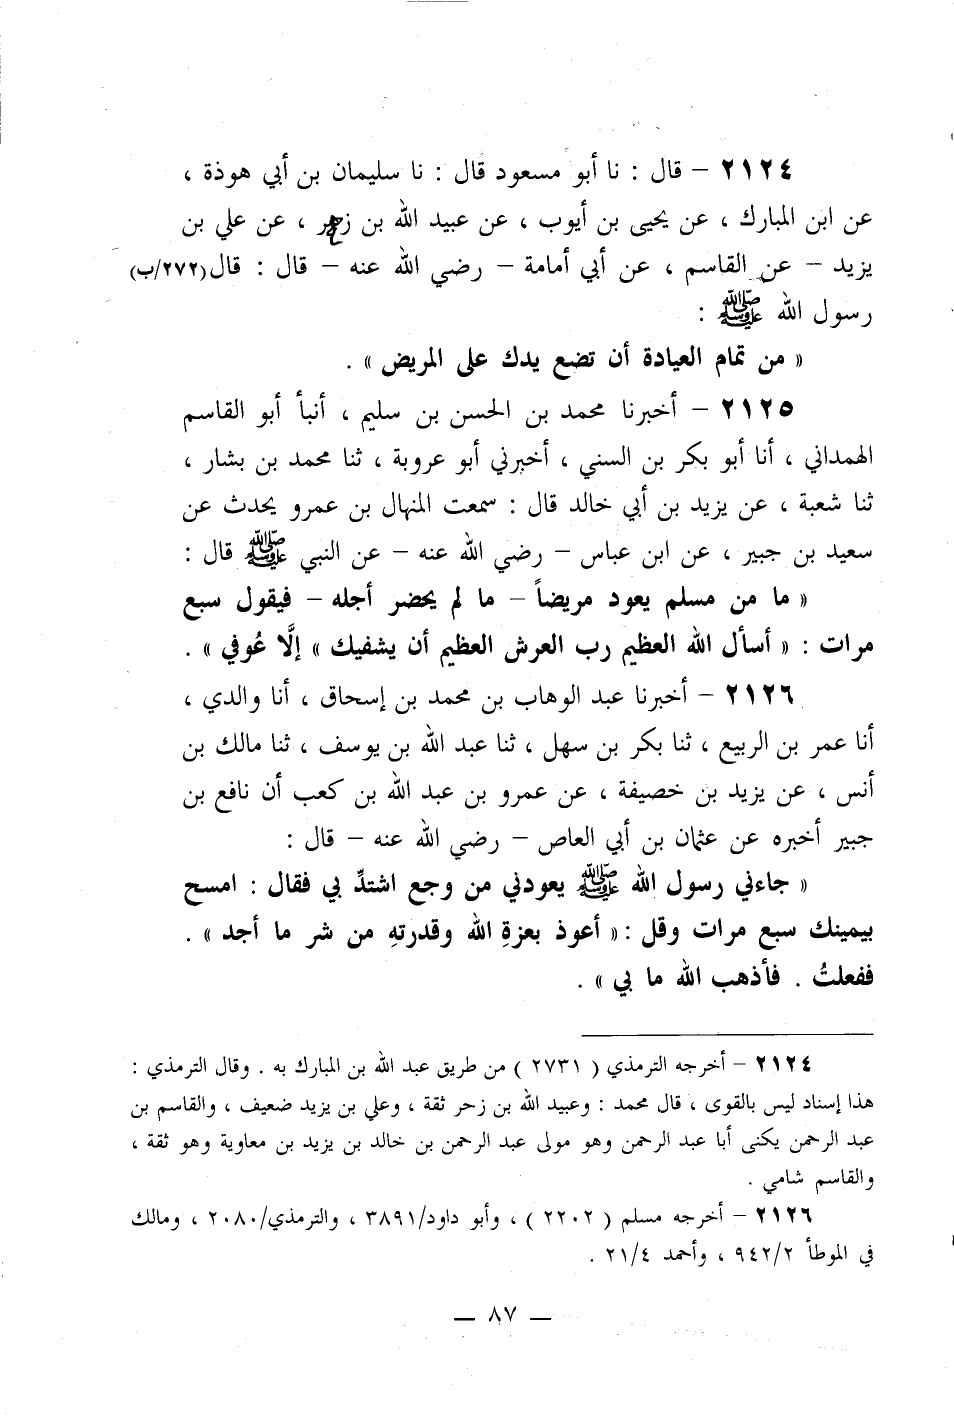 ٢١٢٤ – قال : نا أبو مسعود قال : نا سليمان بن أبي هوذة ،
عن ابن المبارك ، عن يحيى بن أيوب ، عن عبيد الله بن زحر ، عن علي بن
يزيد – عن القاسم ، عن أبي أمامة – رضي الله عنه – قال : قال (٢٧٢/ب)
رسول الله ﷺ :
« من تمام العيادة أن تضع يدك على المريض » .
٢١٢٥ – أخبرنا محمد بن الحسن بن سليم ، أنبأ أبو القاسم
الهمداني ، أنا أبو بكر بن السني ، أخبرني أبو عروبة ، ثنا محمد بن بشار ،
ثنا شعبة ، عن يزيد بن أبي خالد قال : سمعت المنهال بن عمرو يحدث عن
سعيد بن جبير ، عن ابن عباس – رضي الله عنه – عن النبي ﷺ قال :
« ما من مسلم يعود مريضاً – ما لم يحضر أجله – فيقول سبع
مرات : « أسأل الله العظيم رب العرش العظيم أن يشفيك » إلَّا عُوفي » .
٢١٢٦ – أخبرنا عبد الوهاب بن محمد بن إسحاق ، أنا والدي ،
أنا عمر بن الربيع ، ثنا بكر بن سهل ، ثنا عبد الله بن يوسف ، ثنا مالك بن
أنس ، عن يزيد بن خصيفة ، عن عمرو بن عبد الله بن كعب أن نافع بن
جبير أخبره عن عثمان بن أبي العاص – رضي الله عنه – قال :
« جاءني رسول الله ﷺ يعودني من وجع اشتدِّ بي فقال : امسح
بيمينك سبع مرات وقل : « أعوذ بعزةِ الله وقدرتهِ من شر ما أجد » .
ففعلتُ . فأذهب الله ما بي » .
٢١٢٤ – أخرجه الترمذي ( ٢٧٣١ ) من طريق عبد الله بن المبارك به . وقال الترمذي :
هذا إسناد ليس بالقوى ، قال محمد : وعبيد الله بن زحر ثقة ، وعلي بن يزيد ضعيف ، والقاسم بن
عبد الرحمن يكنى أبا عبد الرحمن وهو مولى عبد الرحمن بن خالد بن يزيد بن معاوية وهو ثقة ،
والقاسم شامي .
٢١٢٦ – أخرجه مسلم ( ٢٢٠٢ ) ، وأبو داود/٣٨٩١ ، والترمذي/٢٠٨٠ ، ومالك
في الموطأ ٩٤٢/٢ ، وأحمد ٢١/٤ .
— ٨٧ —